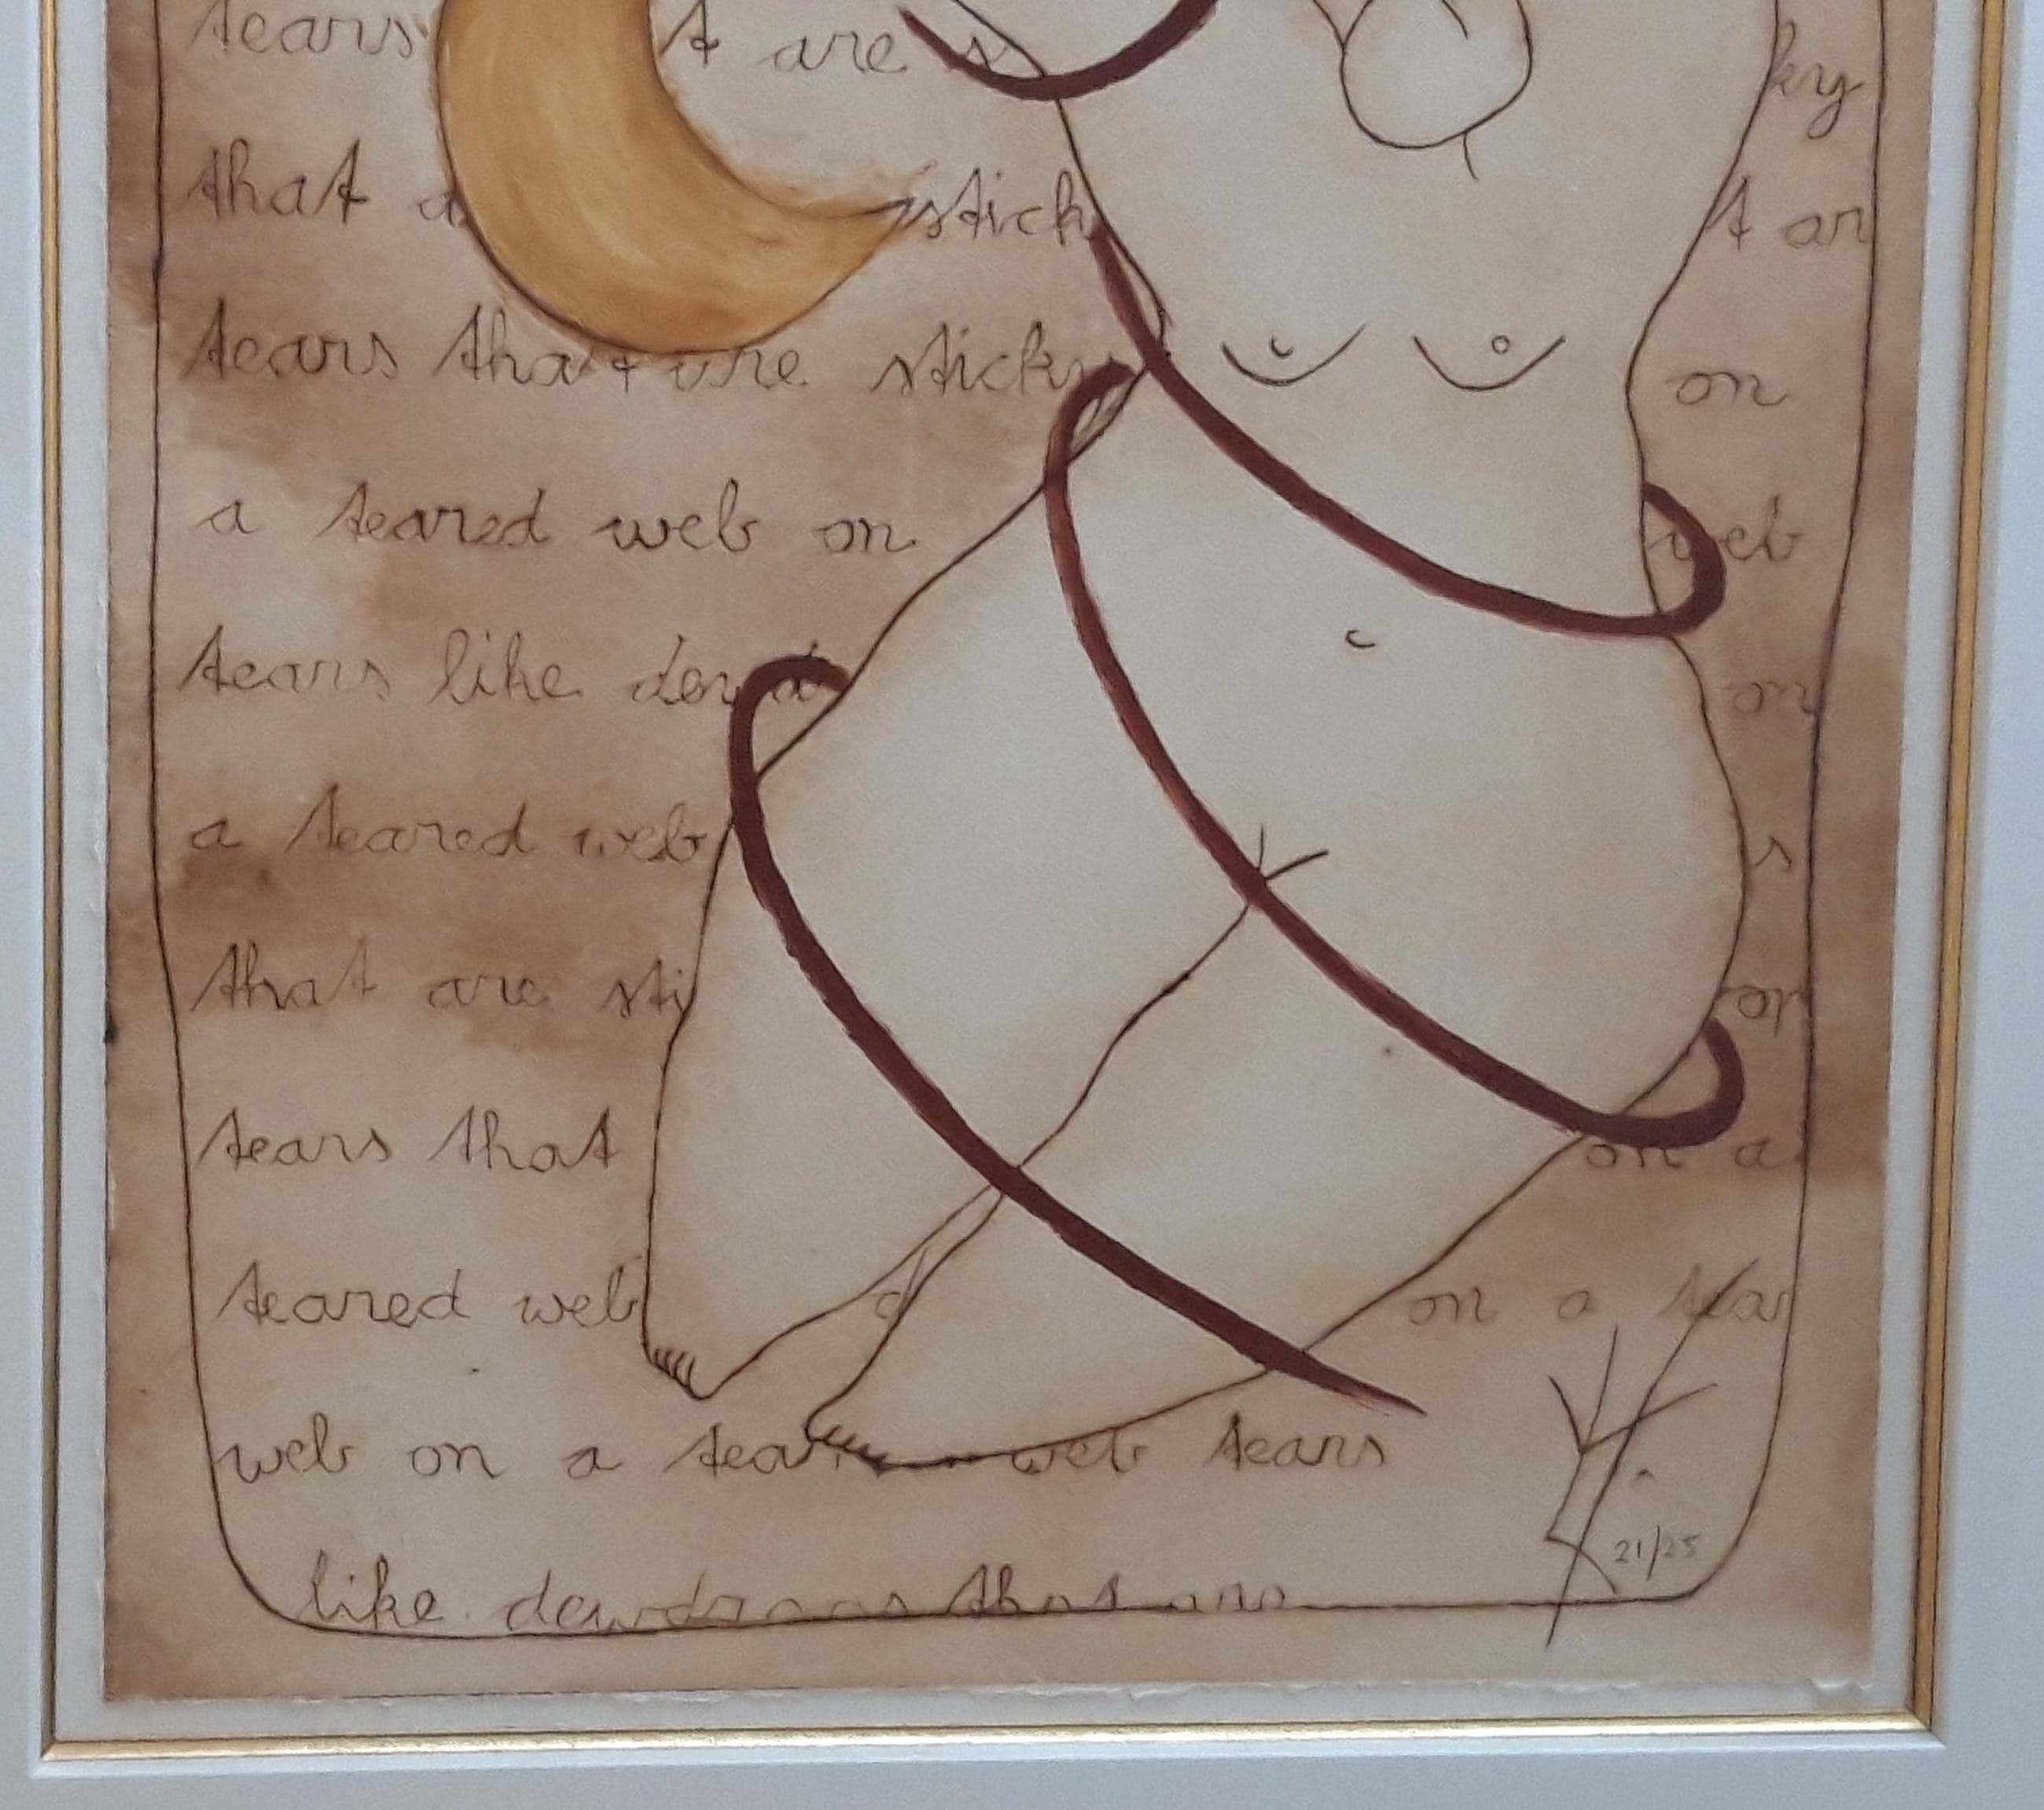 tears t are s ky
that a stick t ar
tears that are sticky on
a teared web on web
tears like dewd on
a teared web s
that are sti on
tears that on a
teared web d on a tear
web on a tear web tears
like dewdrops that are
21/25